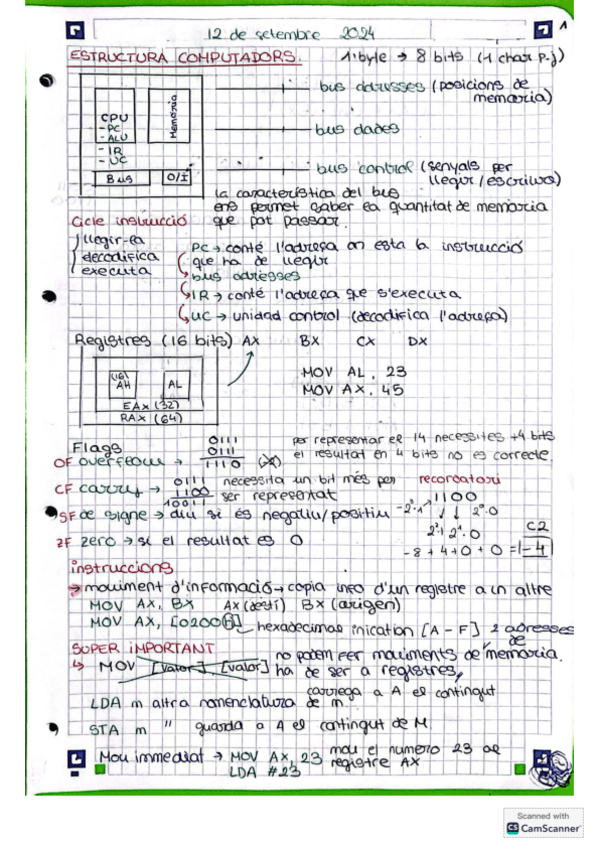 1
12 de setembre 2024
ESTRUCTURA COMPUTADORS.
1 byte → 8 bits (1 char p.j)
CPU
- PC
- ALU
- IR
- UC
Memòria
Bus
O/I
bus adresses (posicions de memòria)
bus dades
bus control (senyals per llegir/escriure)
la característica del bus
ens permet saber la quantitat de memòria
que pot passar.
Cicle instrucció
llegir-la
decodifica
executa
PC → conté l'adreça on esta la instrucció
que ha de llegir
bus adresses
IR → conté l'adreça que s'executa
UC → unidad control (decodifica l'adreça)
Registres (16 bits) AX BX CX DX
(16)
AH
AL
EAX (32)
RAX (64)
MOV AL, 23
MOV AX, 45
Flags
OF overflow →
0111
0111
1110
per representar el 14 necessites +4 bits
el resultat en 4 bits no es correcte.
CF carry →
0111
1100
10011
necessita un bit més per
ser representat
recordatori
1100
-2³·1
2²·1
2¹·0
2⁰·0
-8+4+0+0 = -4
C2
SF de signe → diu si és negatiu/positiu
ZF zero → si el resultat es 0
instruccions
→ moviment d'informació → copia info d'un registre a un altre
MOV AX, BX AX (destí) BX (origen)
MOV AX, [0200h] hexadecimal [A-F]
SUPER IMPORTANT
↳ MOV [valor], [valor]
no podem fer moviments de 2 adresses de memòria.
ha de ser a registres,
LDA m altra nomenclatura
carrega a A el contingut
de m.
STA m " guarda a A el contingut de M.
Mov immediat → MOV AX, 23
LDA #23
mou el numero 23 al
registre AX
Scanned with
CS CamScanner